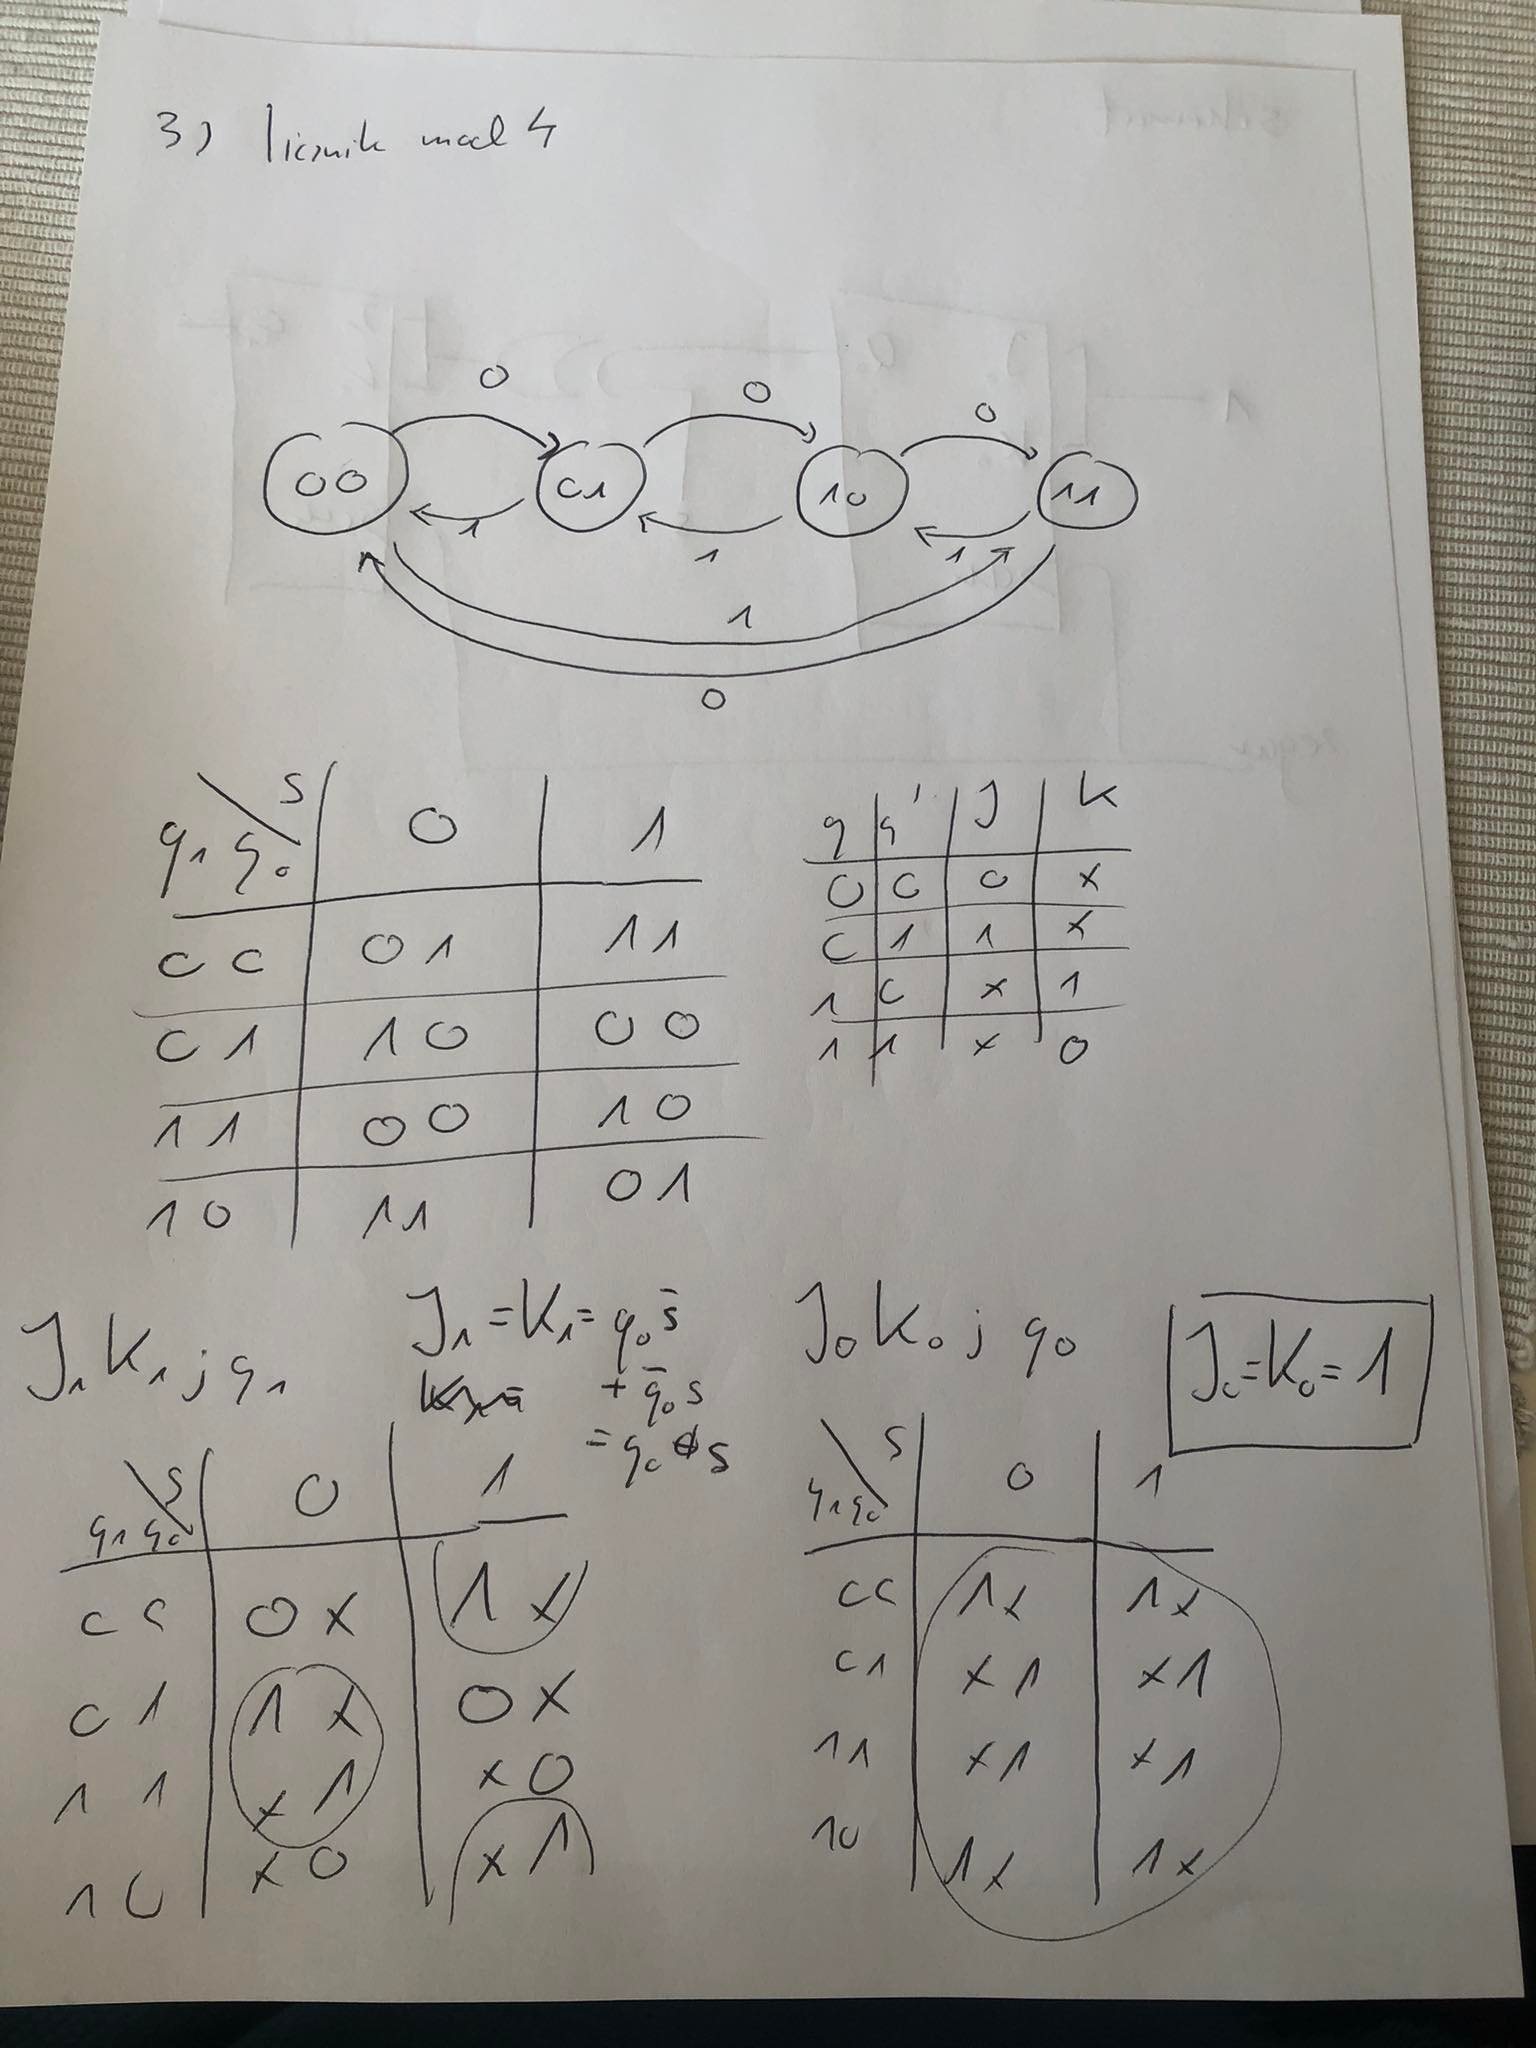 3) licznik mod 4
0 0 0
00 01 10 11
1 1 1
1
0
q₁ q₀ \ s 0 1
00 01 11
01 10 00
11 00 10
10 11 01
q q' J K
0 0 0 x
0 1 1 x
1 0 x 1
1 1 x 0
J₁ K₁ j q₁
J₁ = K₁ = q₀ s̄
+ q̄₀ s
= q₀ ⊕ s
q₁ q₀ \ s 0 1
00 0x 1x
01 1x 0x
11 x1 x0
10 x0 x1
J₀ K₀ j q₀
J₀ = K₀ = 1
q₁ q₀ \ s 0 1
00 1x 1x
01 x1 x1
11 x1 x1
10 1x 1x